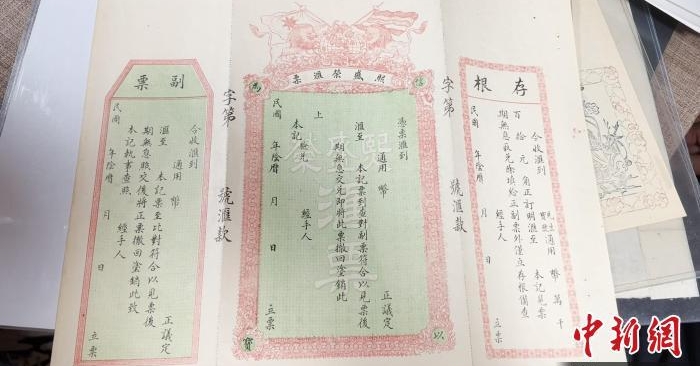 存根
今收滙到
通用 幣 萬 千
百 拾 元 角正訂明滙至 本記見票
期無息兌除填給正副票外僅立存根備查
經手人
民國 年陰曆 月 日 立票
字第 號滙款
熙盛榮滙票
信
為
以
寶
憑票滙到
通用 幣 正議定
滙至 本記票到查對副票符合以見票後
期無息交兌即將此票撤回塗銷此
上
本記驗兌 經手人
民國 年陰曆 月 日 立票
字第 號滙款
副票
今收滙到
通用 幣 正議定
滙至 本記票至比對符合以見票後
期無息照交後將正票撤回塗銷此致
本記執事查照 經手人
民國 年陰曆 月 日 立票
中新網